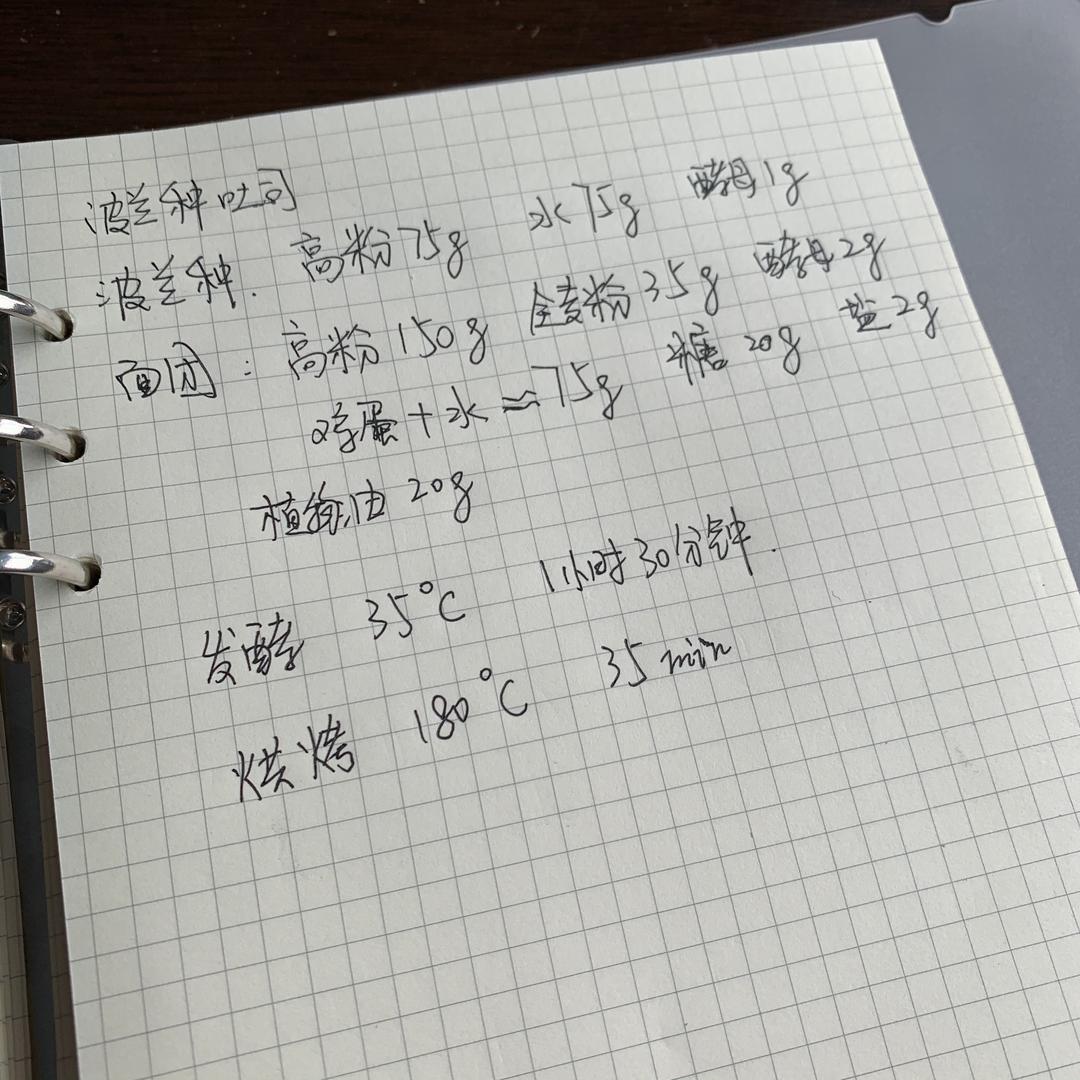 波兰种吐司
波兰种. 高粉75g 水75g 酵母1g
面团: 高粉150g 全麦粉35g 酵母2g
鸡蛋+水≈75g 糖20g 盐2g
植物油20g
发酵 35°C 1小时30分钟.
烘烤 180°C 35min